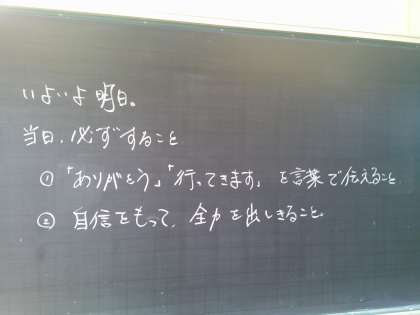 いよいよ明日。
当日、必ずすること
①「ありがとう」「行ってきます」を言葉で伝えること
②自信をもって、全力を出しきること。